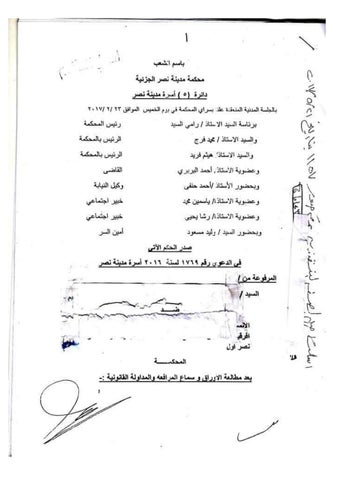 ١
باسم الشعب
محكمة مدينة نصر الجزئية
دائرة (٥) أسرة مدينة نصر
بالجلسة المدنية المنعقدة علنا بسراي المحكمة في يوم الخميس الموافق ٢٠١٧/٢/٢٣
برئاسة السيد الاستاذ / رامي السيد رئيس المحكمة
والسيد الاستاذ / محمد فرج الرئيس بالمحكمة
والسيد الاستاذ/ هيثم فريد الرئيس بالمحكمة
وعضوية الاستاذ/ أحمد البربري القاضى
وبحضور الأستاذ /أحمد حنفى وكيل النيابة
وعضوية الاستاذ/ ياسمين محمد خبير اجتماعي
وعضوية الاستاذ/ رشا يحيى خبير اجتماعي
وبحضور السيد / وليد مسعود أمين السر
صدر الحكم الأتي
في الدعوي رقم ١٧٦٩ لسنة ٢٠١٦ أسرة مدينة نصر
المرفوعة من /
السيد /
ضد
نصر اول
المحكمة
بعد مطالعة الاوراق و سماع المرافعه والمداولة القانونية :-